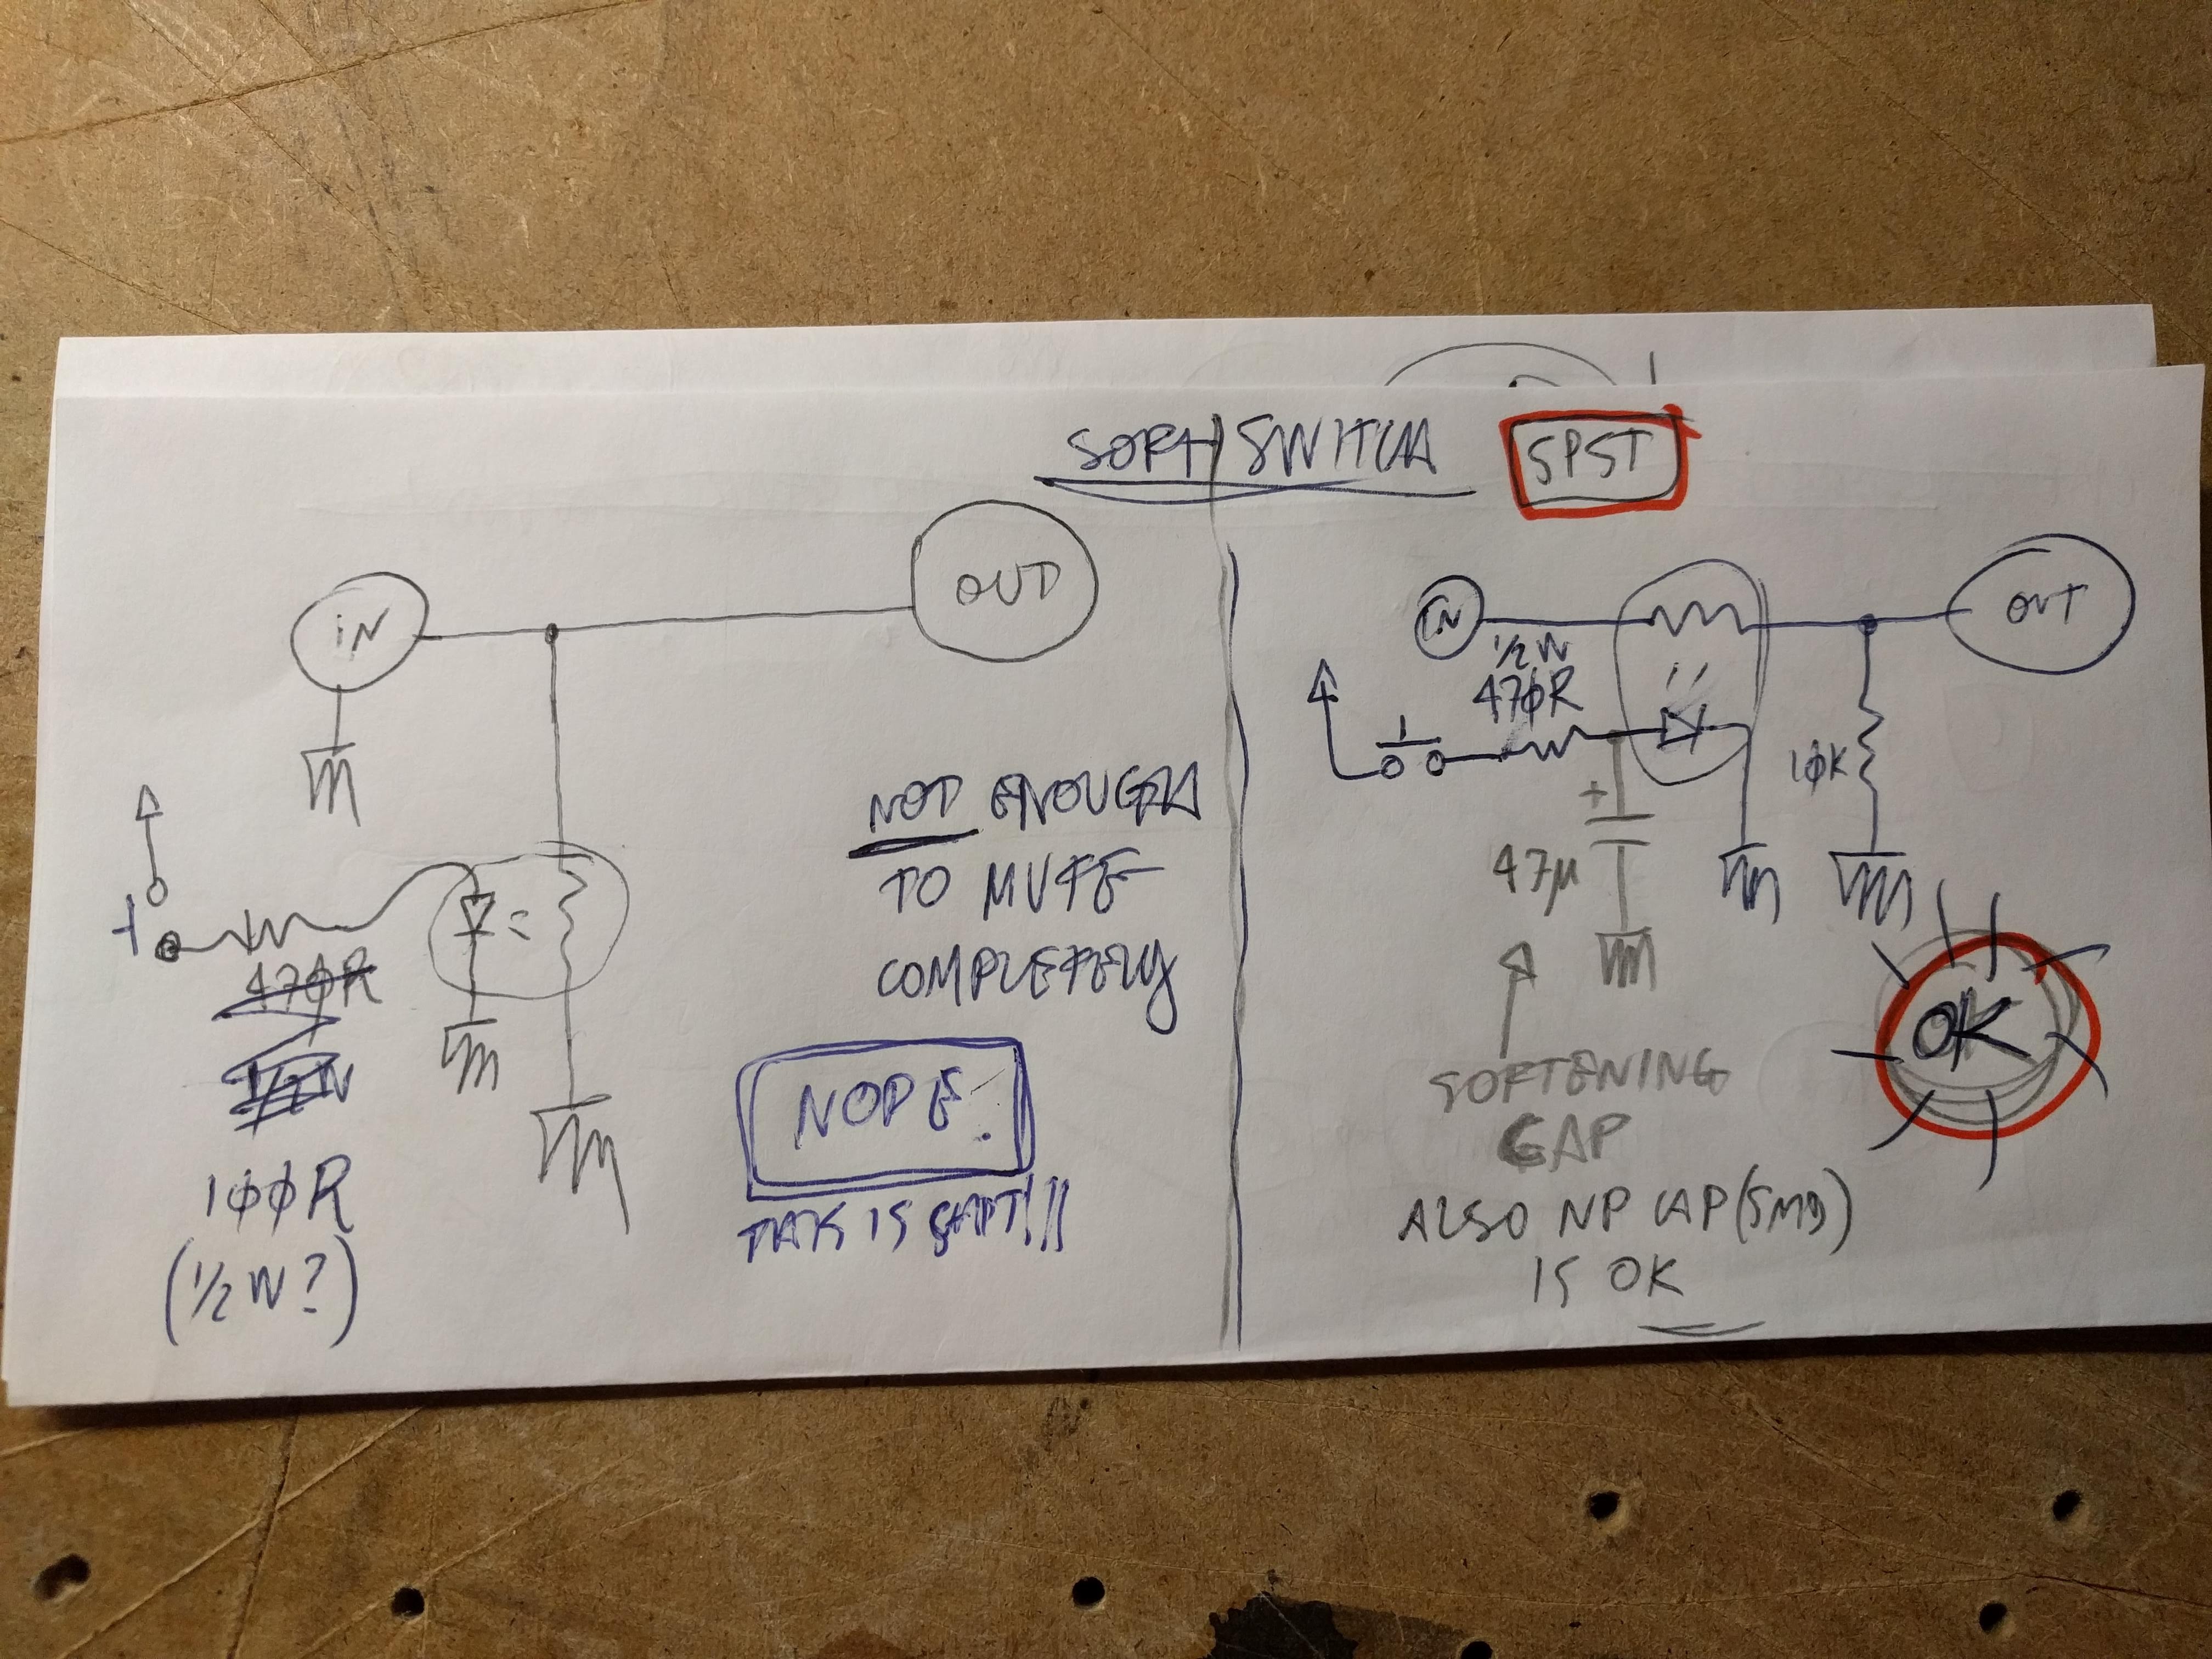 SOFT SWITCH
SPST
IN
OUT
470R
1/2W
100R
(1/2 W?)
NOT ENOUGH
TO MUTE
COMPLETELY
NOPE.
IN
OUT
1/2 W
470R
10K
+
47µ
SOFTENING
CAP
ALSO NP CAP (SMD)
IS OK
OK